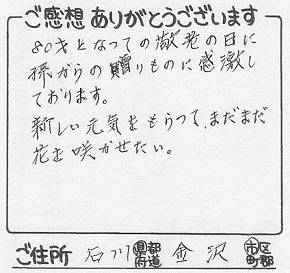 ご感想ありがとうございます
80才となっての敬老の日に
孫からの贈りものに感激し
ております。
新しい元気をもらって、まだまだ
花を咲かせたい。
ご住所 石川 都道府県 金沢 市区町郡